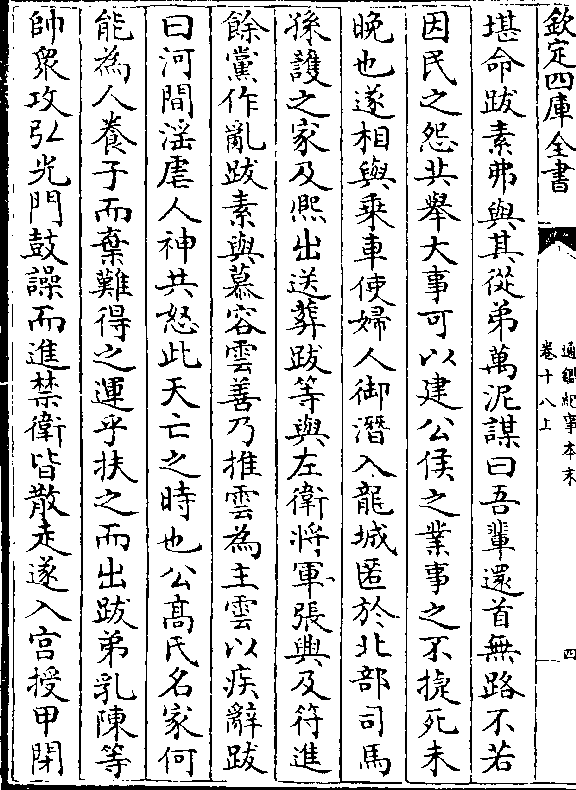 欽定四庫全書
通鑑紀事本末
卷十八上
四
堪命跋素弗與其從弟萬泥謀曰吾輩還首無路不若
因民之怨共舉大事可以建公侯之業事之不捷死未
晚也遂相與乘車使婦人御潛入龍城匿於北部司馬
孫護之家及熈出送葬跋等與左衛將軍張興及符進
餘黨作亂跋素與慕容雲善乃推雲為主雲以疾辭跋
曰河間淫虐人神共怒此天亡之時也公髙氏名家何
能為人養子而棄難得之運乎扶之而出跋弟乳陳等
帥衆攻弘光門鼓譟而進禁衛皆散走遂入宫授甲閉